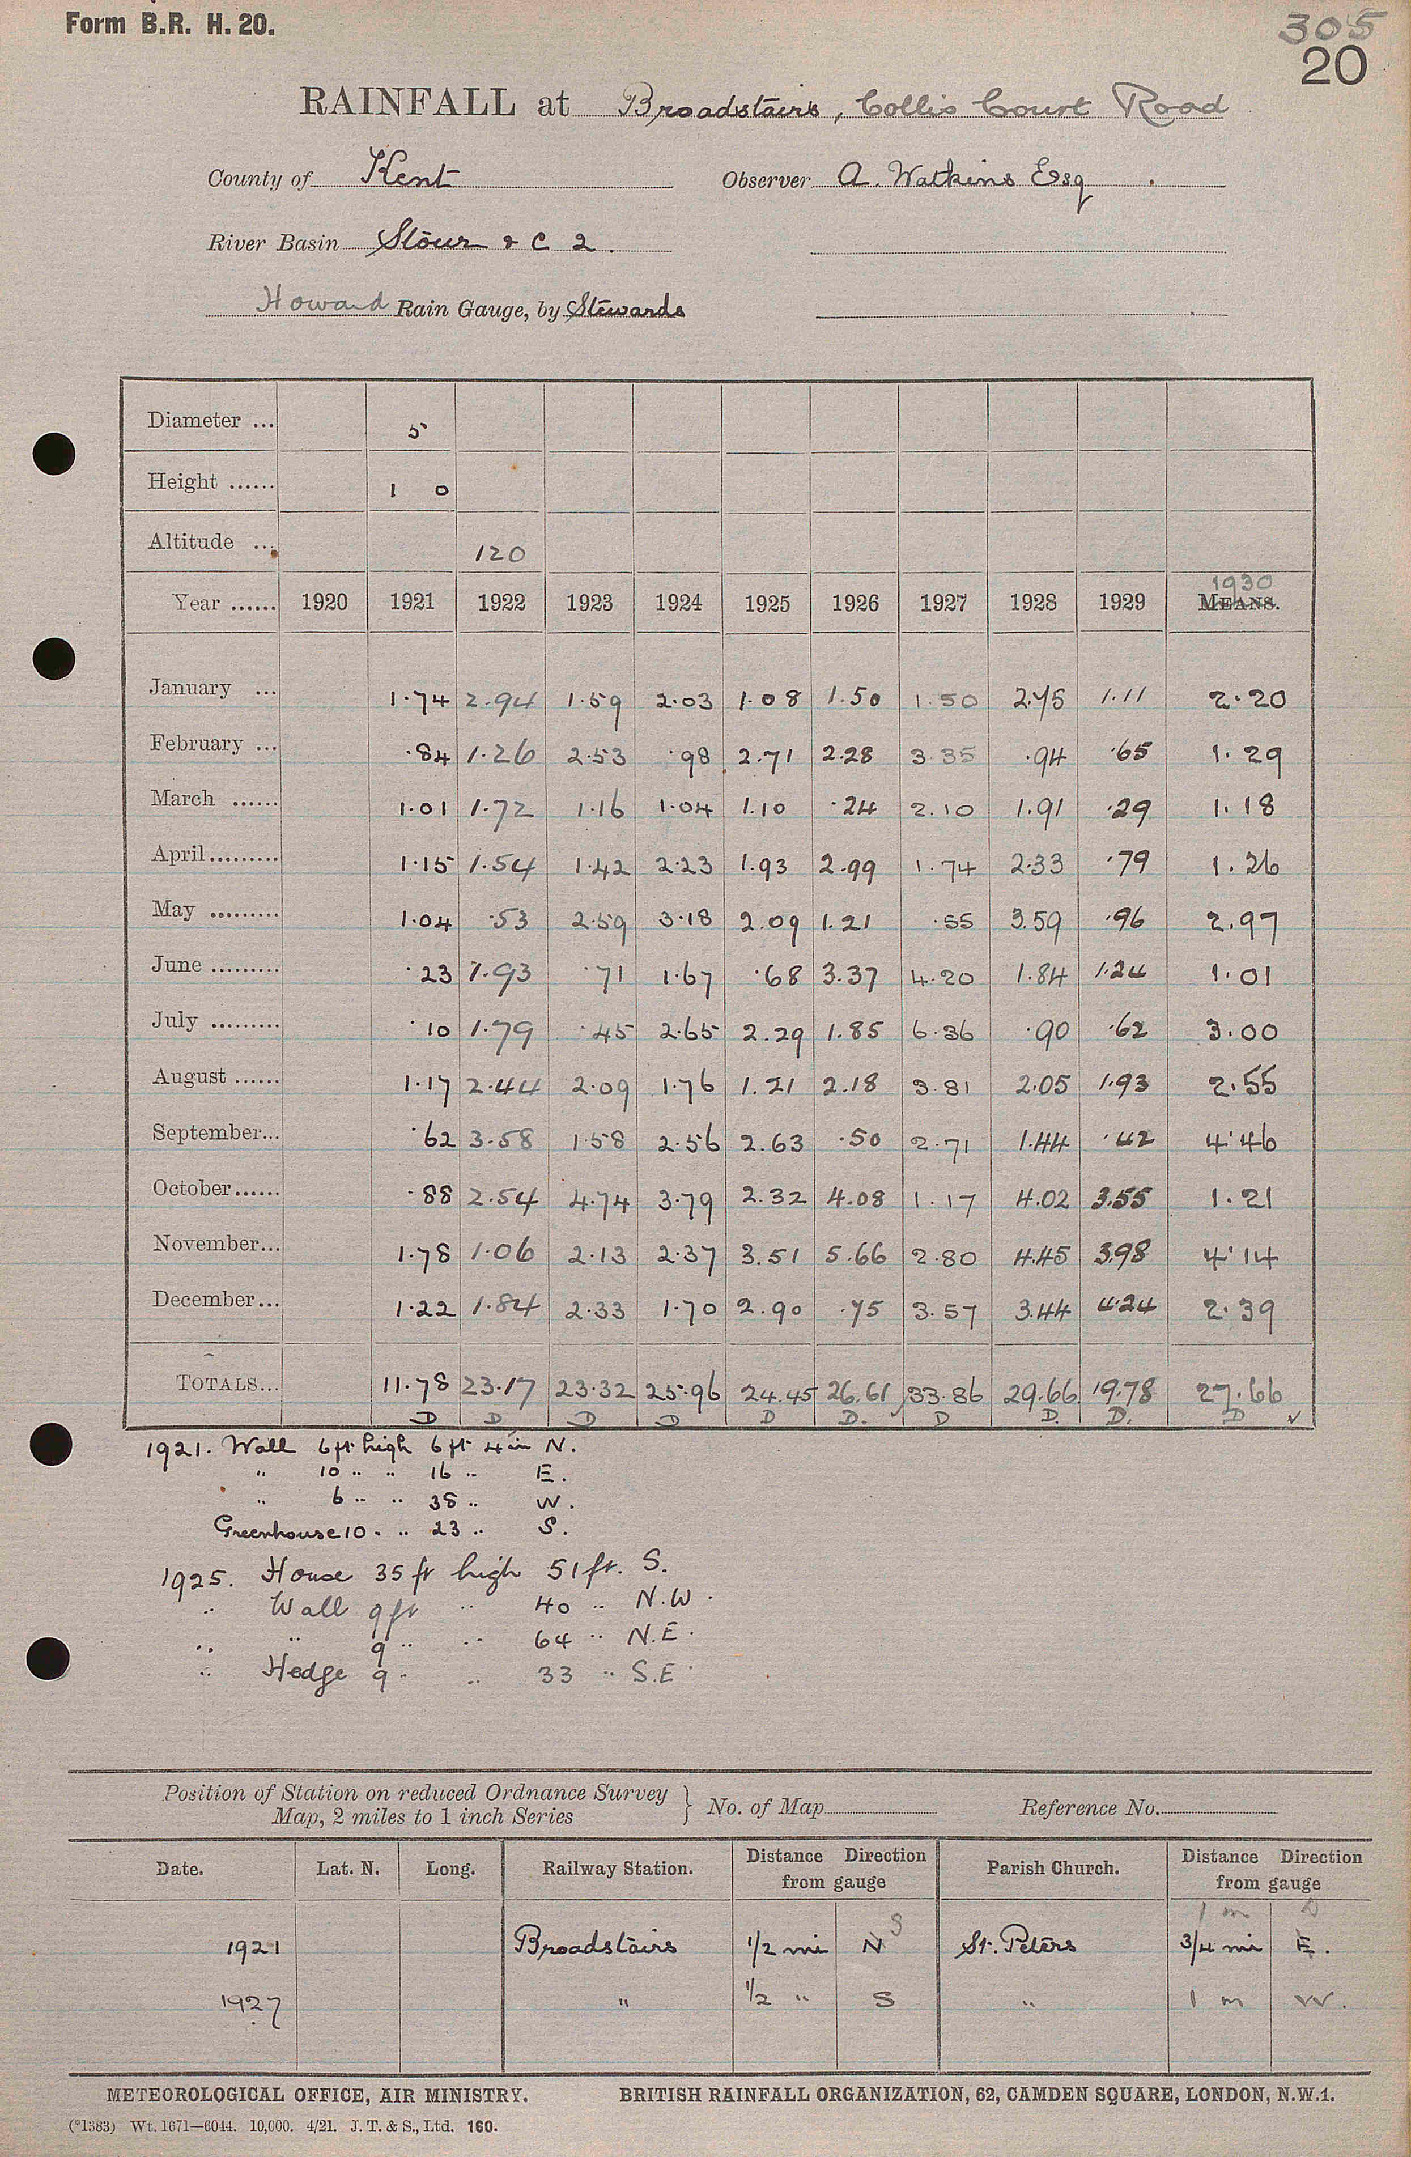 Form B.R. H. 20.
305
20
RAINFALL at Broadstairs, Collis Court Road
County of Kent Observer A. Watkins Esq
River Basin Stour & C 2.
Howard Rain Gauge, by Stewards
Diameter ... 5
Height ...... 1 0
Altitude ... 120
1930
Year ...... 1920 1921 1922 1923 1924 1925 1926 1927 1928 1929 MEANS.
January ... 1.74 2.94 1.59 2.03 1.08 1.50 1.50 2.75 1.11 2.20
February ... .84 1.26 2.53 .98 2.71 2.28 3.35 .94 .65 1.29
March ...... 1.01 1.72 1.16 1.04 1.10 .24 2.10 1.91 .29 1.18
April......... 1.15 1.54 1.42 2.23 1.93 2.99 1.74 2.33 .79 1.26
May ......... 1.04 .53 2.59 3.18 2.09 1.21 .55 3.59 .96 2.97
June ......... .23 1.93 .71 1.67 .68 3.37 4.20 1.84 1.24 1.01
July ......... .10 1.79 .45 2.65 2.29 1.85 6.36 .90 .62 3.00
August ...... 1.17 2.44 2.09 1.76 1.21 2.18 3.81 2.05 1.93 2.55
September... .62 3.58 1.58 2.56 2.63 .50 2.71 1.44 .42 4.46
October...... .88 2.54 4.74 3.79 2.32 4.08 1.17 4.02 3.55 1.21
November... 1.78 1.06 2.13 2.37 3.51 5.66 2.80 4.45 3.98 4.14
December... 1.22 1.84 2.33 1.70 2.90 .75 3.57 3.44 4.24 2.39
TOTALS... 11.78 23.17 23.32 25.96 24.45 26.61 33.86 29.66 19.78 27.66
D D D D D D. D D. D. D ✓
1921. Wall 6 ft high 6 ft 4 in N.
" 10 " " 16 " E.
" 6 " " 38 " W.
Greenhouse 10 " " 23 " S.
1925. House 35 ft high 51 ft. S.
" Wall 9 ft " 40 " N.W.
" " 9 " " 64 " N.E.
" Hedge 9 " " 33 " S.E.
Position of Station on reduced Ordnance Survey
Map, 2 miles to 1 inch Series } No. of Map Reference No.
Date. Lat. N. Long. Railway Station. Distance Direction from gauge Parish Church. Distance Direction from gauge
S 1 m
1921 Broadstairs 1/2 mi N St. Peters 3/4 mi E.
1927 " 1/2 " S " 1 m W.
METEOROLOGICAL OFFICE, AIR MINISTRY. BRITISH RAINFALL ORGANIZATION, 62, CAMDEN SQUARE, LONDON, N.W.1.
(*1383) Wt. 1671—6044. 10,000. 4/21. J. T. & S., Ltd. 160.